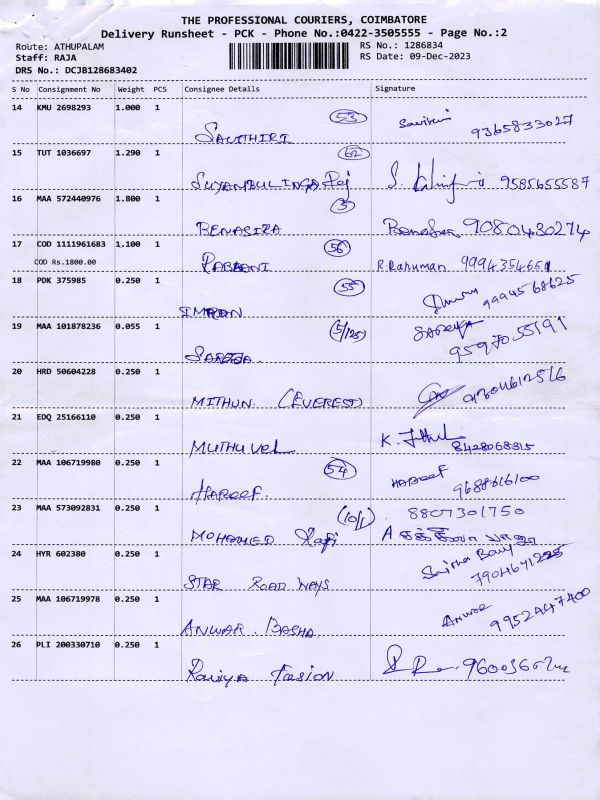 THE PROFESSIONAL COURIERS, COIMBATORE
Delivery Runsheet - PCK - Phone No.:0422-3505555 - Page No.:2
Route: ATHUPALAM RS No.: 1286834
Staff: RAJA RS Date: 09-Dec-2023
DRS No.: DCJB128683402
S No Consignment No Weight PCS Consignee Details Signature
14 KMU 2698293 1.000 1 53
SAVITHIRI 9365833027
15 TUT 1036697 1.290 1 62
SUYAMBULINGA Raj 9585655587
16 MAA 572440976 1.800 1 3
BENASIRA 9080430274
17 COD 1111961683 1.100 1 56
COD Rs.1800.00 RABBANI R.Rahuman 9994354651
18 PDK 375985 0.250 1 55
IMRAN 9994568625
19 MAA 101878236 0.055 1 (5/125)
9597055191
20 HRD 50604228 0.250 1
MITHUN. (EVEREST)
21 EDQ 25166110 0.250 1
MUTHUVEL 8428068315
22 MAA 106719980 0.250 1 54
HAREEF. HAREEF 9688616100
23 MAA 573092831 0.250 1 (10/1) 8807301750
MOHAMED Rafi
24 HYR 602380 0.250 1
STAR ROAD WAYS
25 MAA 106719978 0.250 1
ANWAR. BASHA. Anwar 9952447400
26 PLI 200330710 0.250 1